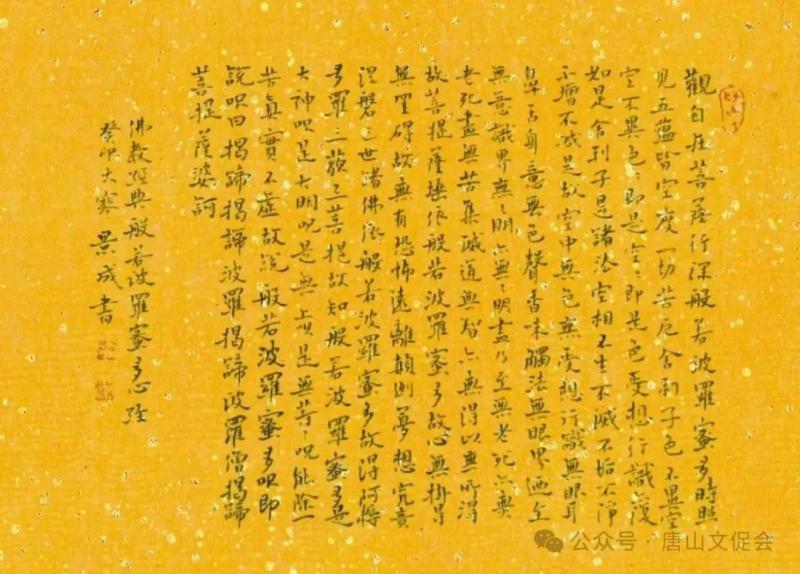 觀自在菩薩行深般若波羅蜜多時照
見五蘊皆空度一切苦厄舍利子色不異空
空不異色色即是空空即是色受想行識亦復
如是舍利子是諸法空相不生不滅不垢不淨
不增不減是故空中無色無受想行識無眼耳
鼻舌身意無色聲香味觸法無眼界迺至
無意識界無無明亦無無明盡乃至無老死亦無
老死盡無苦集滅道無智亦無得以無所得
故菩提薩埵依般若波羅蜜多故心無掛碍
無罣碍故無有恐怖遠離顛倒夢想究竟
涅磐三世諸佛依般若波羅蜜多故得阿耨
多羅三藐三菩提故知般若波羅蜜多是
大神呪是大明呪是無上呪是無等等呪能除一
切苦真實不虛故說般若波羅蜜多呪即
說呪曰揭諦揭諦波羅揭諦波羅僧揭諦
菩提薩婆訶
佛教經典般若波羅蜜多心經
癸卯大寒景成書
公众号·唐山文促会